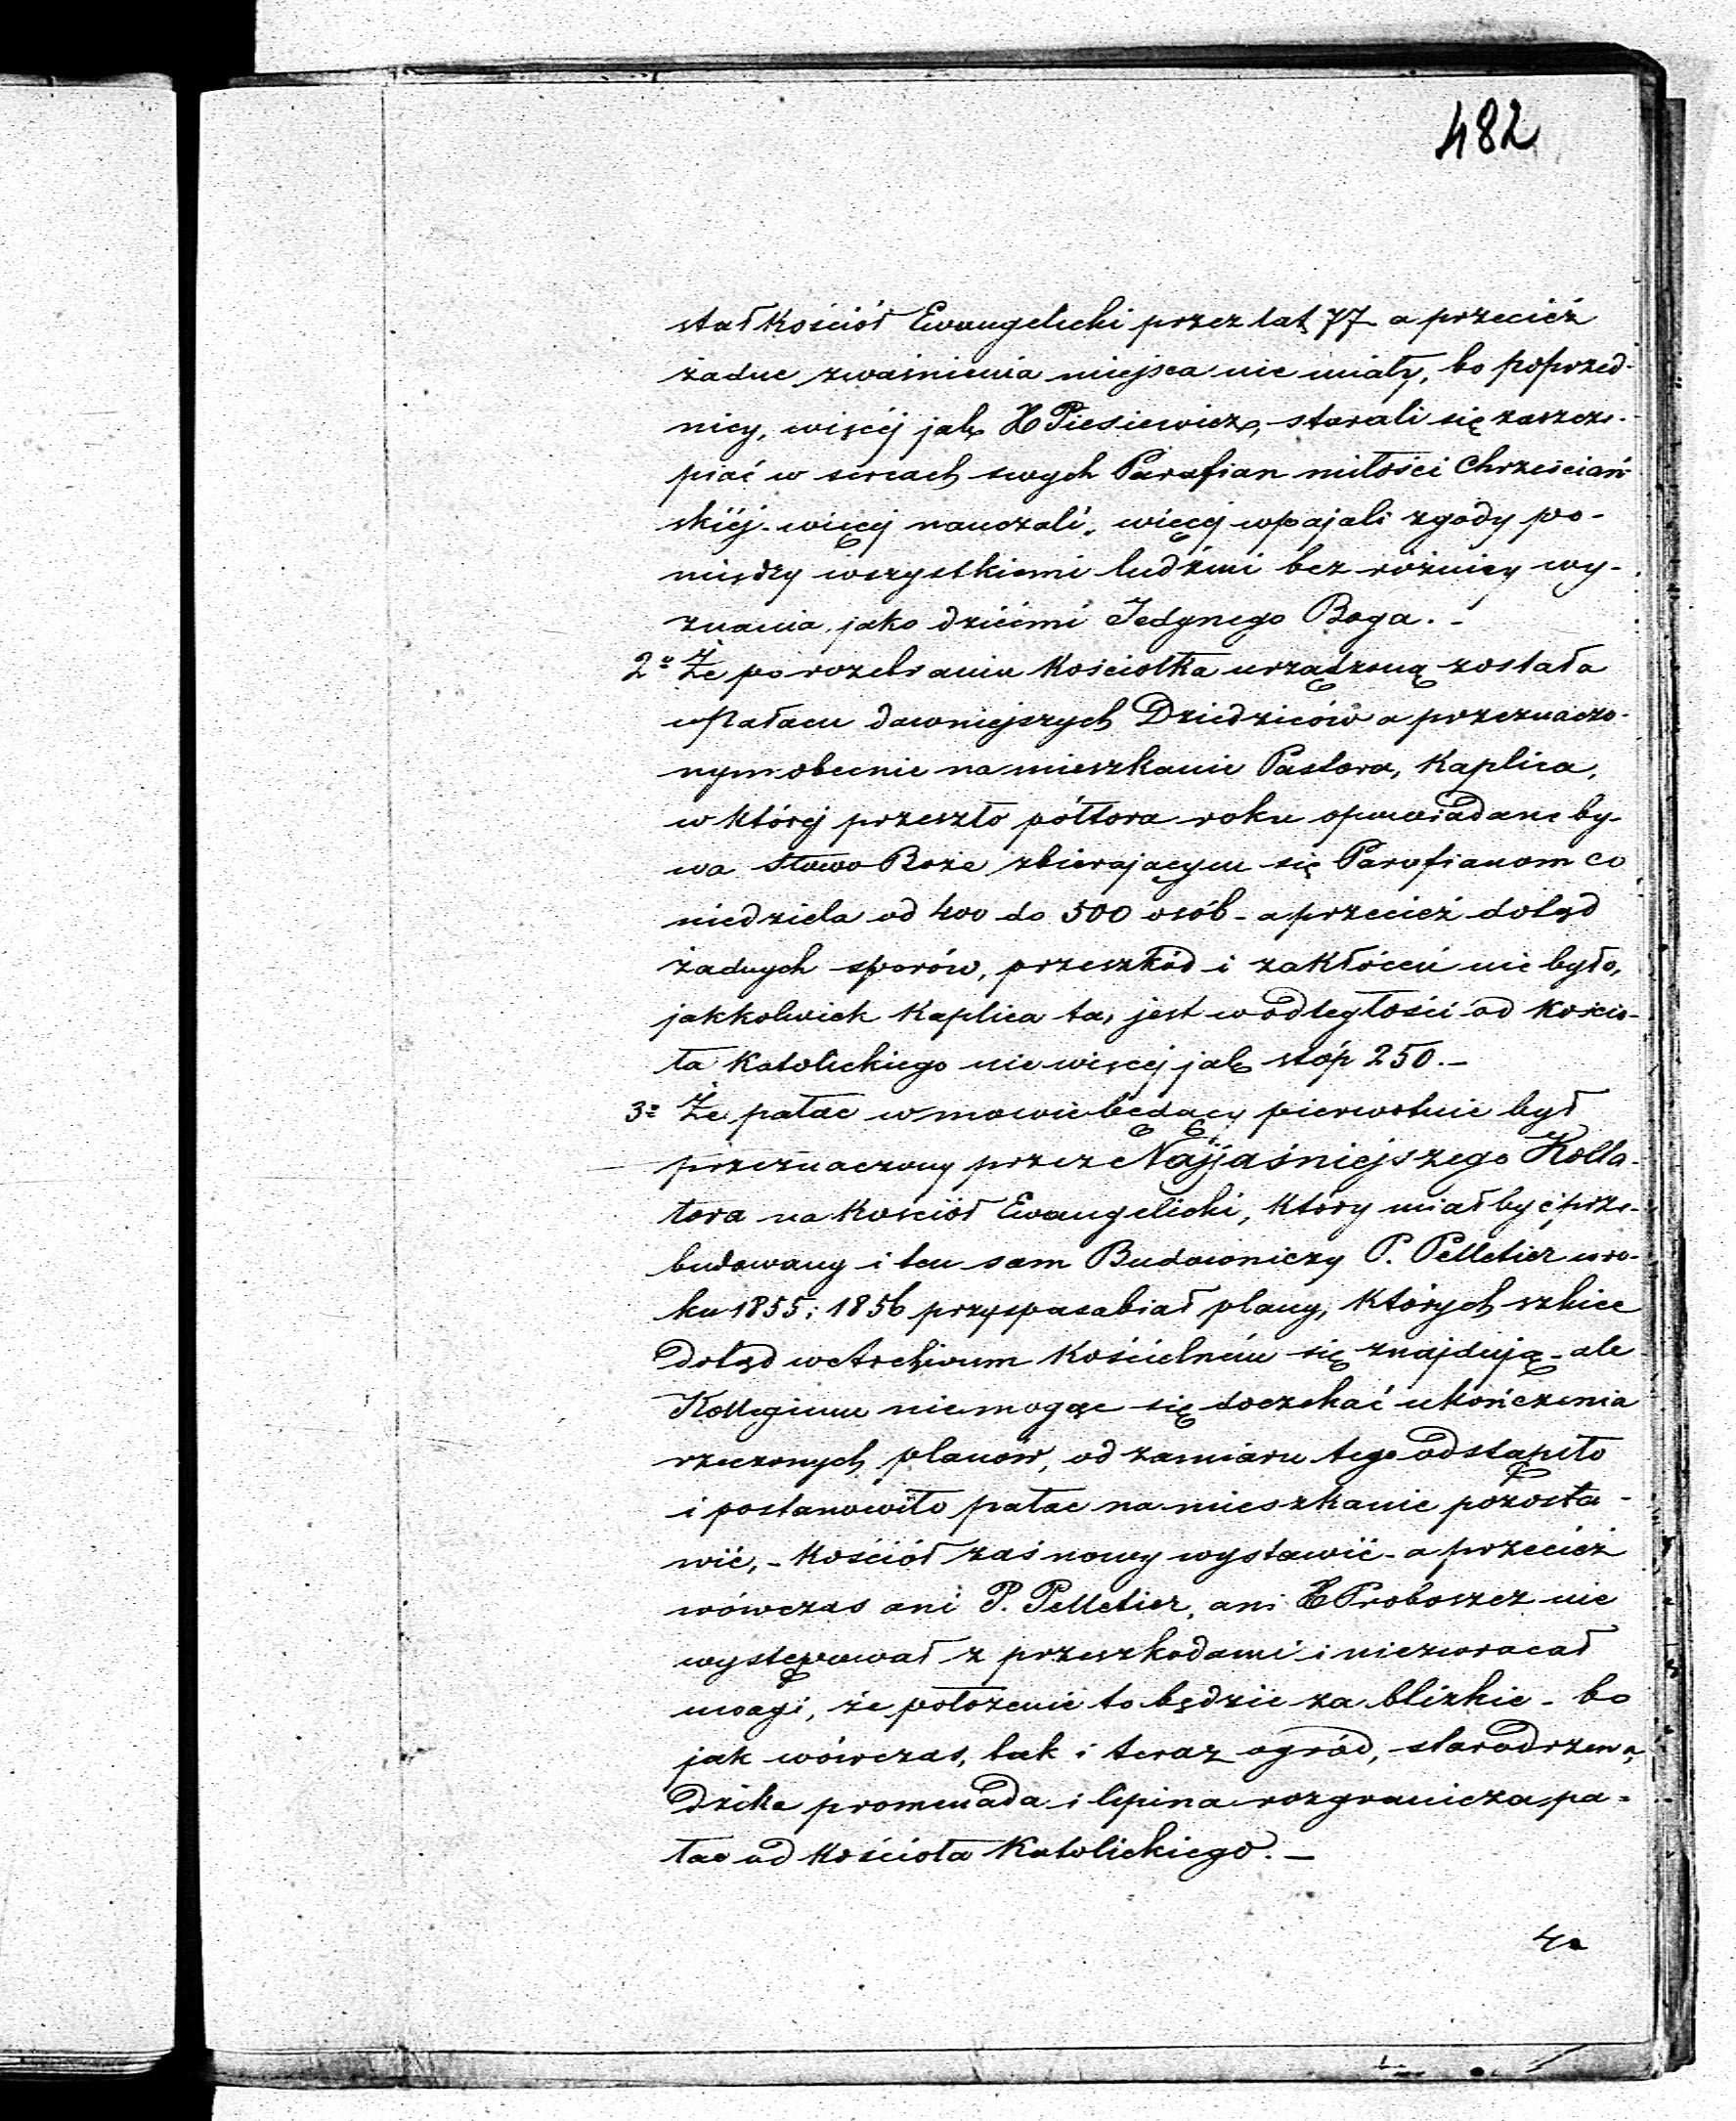 482
stał Kościół Ewangelicki przez lat 77 a przecież
żadne zwaśnienia miejsca nie miały, bo poprzed-
nicy, więcéj jak X Piesiewicz, starali się zaszcze-
piać w sercach swych Parafian miłości Chrześciań-
skiéj - więcej nauczali, więcej wpajali zgody po-
między wszystkiemi ludźmi bez różnicy wy-
znania, jako dziećmi Jedynego Boga. -
2o Że po rozebraniu Kościołka urządzoną została
w Pałacu dawniejszych Dziedziców a przeznaczo-
nym obecnie na mieszkanie Pastora, Kaplica,
w której przeszło półtora roku opowiadane by-
wa Słowo Boże zbierającym się Parafianom co
niedziela od 400 do 500 osób - a przecież dotąd
żadnych sporów, przeszkód i zakłóceń nie było,
jakkolwiek Kaplica ta, jest w odległości od Kościo-
ła Katolickiego nie więcej jak stóp 250. -
3o Że pałac w mowie będący pierwotnie był
przeznaczony przez Najjaśniejszego Kolla-
tora na Kościół Ewangelicki, który miał być prze-
budowany i ten sam Budowniczy P. Pelletier w ro-
ku 1855 i 1856 przysposabiał plany, których szkice
dotąd w Archivum Kościelnem się znajdują - ale
Kollegium niemogąc się doczekać ukończenia
rzeczonych planów, od zamiaru tego odstąpiło
i postanowiło pałac na mieszkanie pozosta-
wić, - Kościół zaś nowy wystawić - a przecież
wówczas ani P. Pelletier, ani X Proboszcz nie
występował z przeszkodami i niezwracał
uwagi, że położenie to będzie za blizkie - bo
jak wówczas, tak i teraz ogród, starodrzew,
dzika promenada i lepina rozgranicza pa-
łac od Kościoła Katolickiego. -
4o